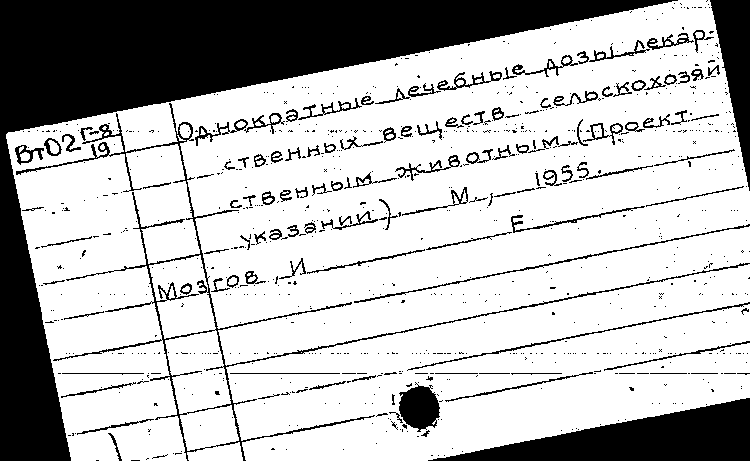 ВтО2 Г-8/19
Однократные лечебные дозы лекар-
ственных веществ сельскохозяй
ственным животным. (Проект
указаний). М., 1955.
Е
Мозгов, И